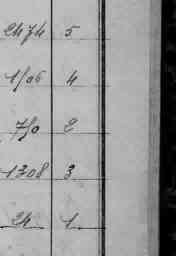 2474 5
1706 4
750 2
1308 3
24 1